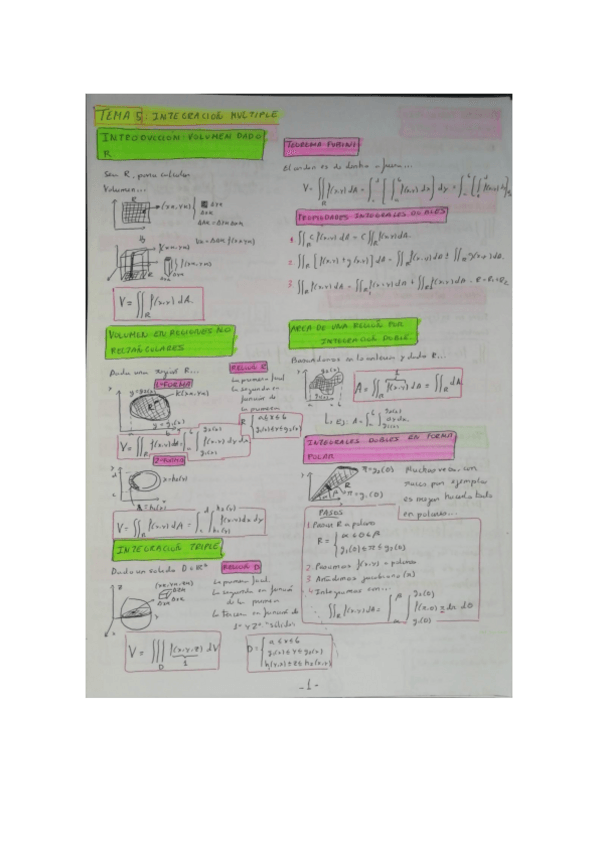 TEMA 5: INTEGRACIÓN MÚLTIPLE
INTRODUCCION: VOLUMEN DADO
R.
Sea R, para calcular
Volumen...
(xk, yk)
Δxk
ΔAk = Δxk Δyk
f(xk, yk)
Vk = ΔAk f(xk, yk)
f(xk, yk)
V = ∬_R f(x,y) dA
VOLUMEN EN REGIONES NO
RECTANGULARES
Dada una región R...
1ª FORMA
y = g₂(x)
(xk, yk)
y = g₁(x)
REGIÓN R
La primera fácil
La segunda en
función de
la primera
R { a ≤ x ≤ b
g₁(x) ≤ y ≤ g₂(x)
V = ∬_R f(x,y) dA = ∫_a^b ∫_{g₁(x)}^{g₂(x)} f(x,y) dy dx
2ª FORMA
x = h₂(y)
V = ∬_R f(x,y) dA = ∫_c^d ∫_{h₁(y)}^{h₂(y)} f(x,y) dx dy
INTEGRACIÓN TRIPLE
REGIÓN D
(xk, yk, zk)
Δzk
Δxk
La primera fácil.
La segunda en función
de la primera
La tercera en función de
1ª y 2ª
V = ∭_D f(x,y,z) dV
1
D = { a ≤ x ≤ b
g₁(x) ≤ y ≤ g₂(x)
h₁(x,y) ≤ z ≤ h₂(x,y)
TEOREMA FUBINI
El orden es de dentro a fuera...
V = ∬_R f(x,y) dA = ∫_c^d [∫_a^b f(x,y) dx] dy = ∫_a^b [∫_c^d f(x,y) dy]
PROPIEDADES INTEGRALES DOBLES
1. ∬_R c f(x,y) dA = c ∬_R f(x,y) dA.
2. ∬_R [f(x,y) ± g(x,y)] dA = ∬_R f(x,y) dA ± ∬_R g(x,y) dA.
3. ∬_R f(x,y) dA = ∬ f(x,y) dA + ∬ f(x,y) dA
AREA DE UNA REGION POR
INTEGRACIÓN DOBLE.
dada R...
g₂(x)
g₁(x)
1
A = ∬_R f(x,y) dA = ∬_R dA
Ej: A = ∫_a^b ∫_{g₁(x)}^{g₂(x)}
INTEGRALES DOBLES EN FORMA
POLAR
r = g₂(θ)
R
r = g₁(θ)
Muchas veces, con
por ejemplo
es mejor hacerlo todo
en polares...
PASOS
1. Pasar R a polares
R = { α ≤ θ ≤ β
g₁(θ) ≤ r ≤ g₂(θ)
2. Pasamos f(x,y) a polares
3. Añadimos jacobiano (r)
4. Integramos con...
∬_R f(x,y) dA = ∫_α^β ∫_{g₁(θ)}^{g₂(θ)} f(r,θ) r dr dθ
- 1 -